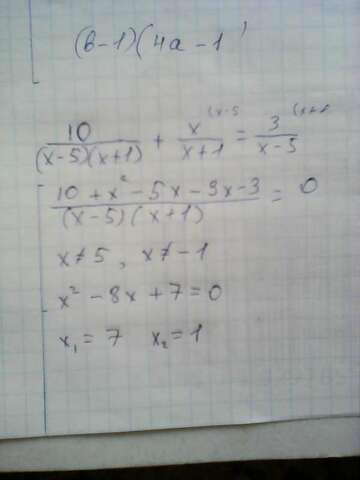 (b-1)(4a-1)
10/((x-5)(x+1)) + x/(x+1) (x-5 = 3/(x-5) (x+1
(10+x²-5x-3x-3)/((x-5)(x+1)) = 0
x≠5, x≠-1
x²-8x+7=0
x₁=7 x₂=1